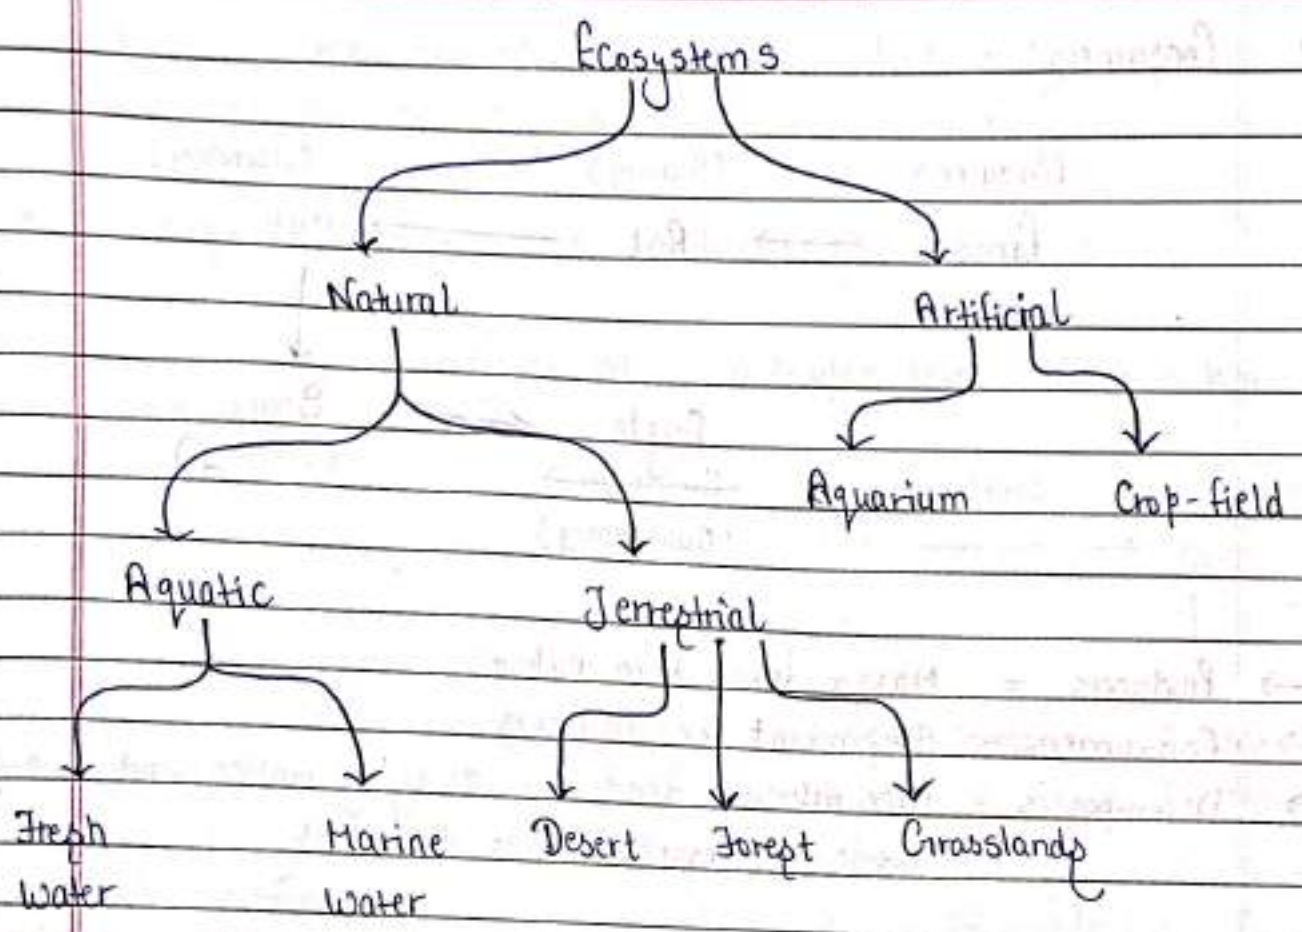 Ecosystems
Natural Artificial
Aquarium Crop-field
Aquatic Terrestrial
Fresh Marine Desert Forest Grasslands
water water